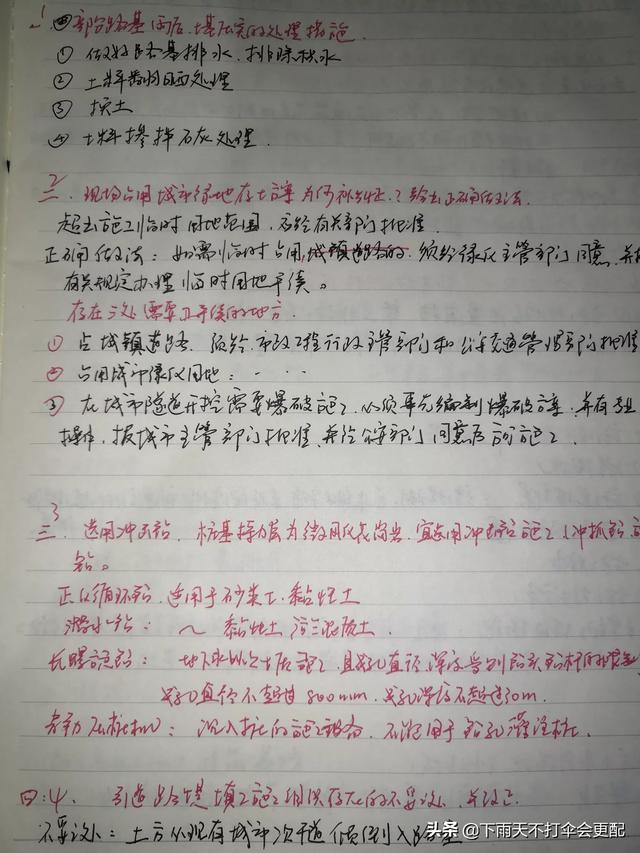 部分路基雨后,填压实的处理措施
① 做好路基排水,排除积水
② 土料翻晒处理
③ 换土
④ 土料掺拌石灰处理.
二. 现场占用城市绿地存土方案为何不妥?给出正确做法.
超出施工临时用地范围,不经有关部门批准.
正确做法:如需临时占用 须经绿化主管部门同意,并按
有关规定办理临时用地手续。
存在 需要 手续的地方.
① 占城镇道路 须经市政工程行政主管部门和公安交通管理部门批准
② 占用城市绿化用地:- - - -
③ 在城市隧道开挖需要爆破施工,必须事先编制爆破方案,并有专业
操作,报城市主管部门批准,并经公安部门同意后方可施工.
3
三. 选用冲击钻, 桩基持力层为微风化花岗岩,宜选用冲击钻施工,冲抓钻
钻。
正反循环钻,适用于砂类土.黏性土
潜水钻: ~ 黏性土 淤泥质土.
长螺旋钻: 地下水位以上土层施工,且成孔直径,深度受到 钻杆的限制
成孔直径不超过800mm,成孔深度不超过30m.
静力压桩机:沉入桩的施工设备,不能用于钻孔灌注桩.
四:4. 引道路堤填工施工组织存在的不妥处,并改正.
不妥处:土方从现有城市次干道倾倒入路基
头条 @下雨天不打伞会更配